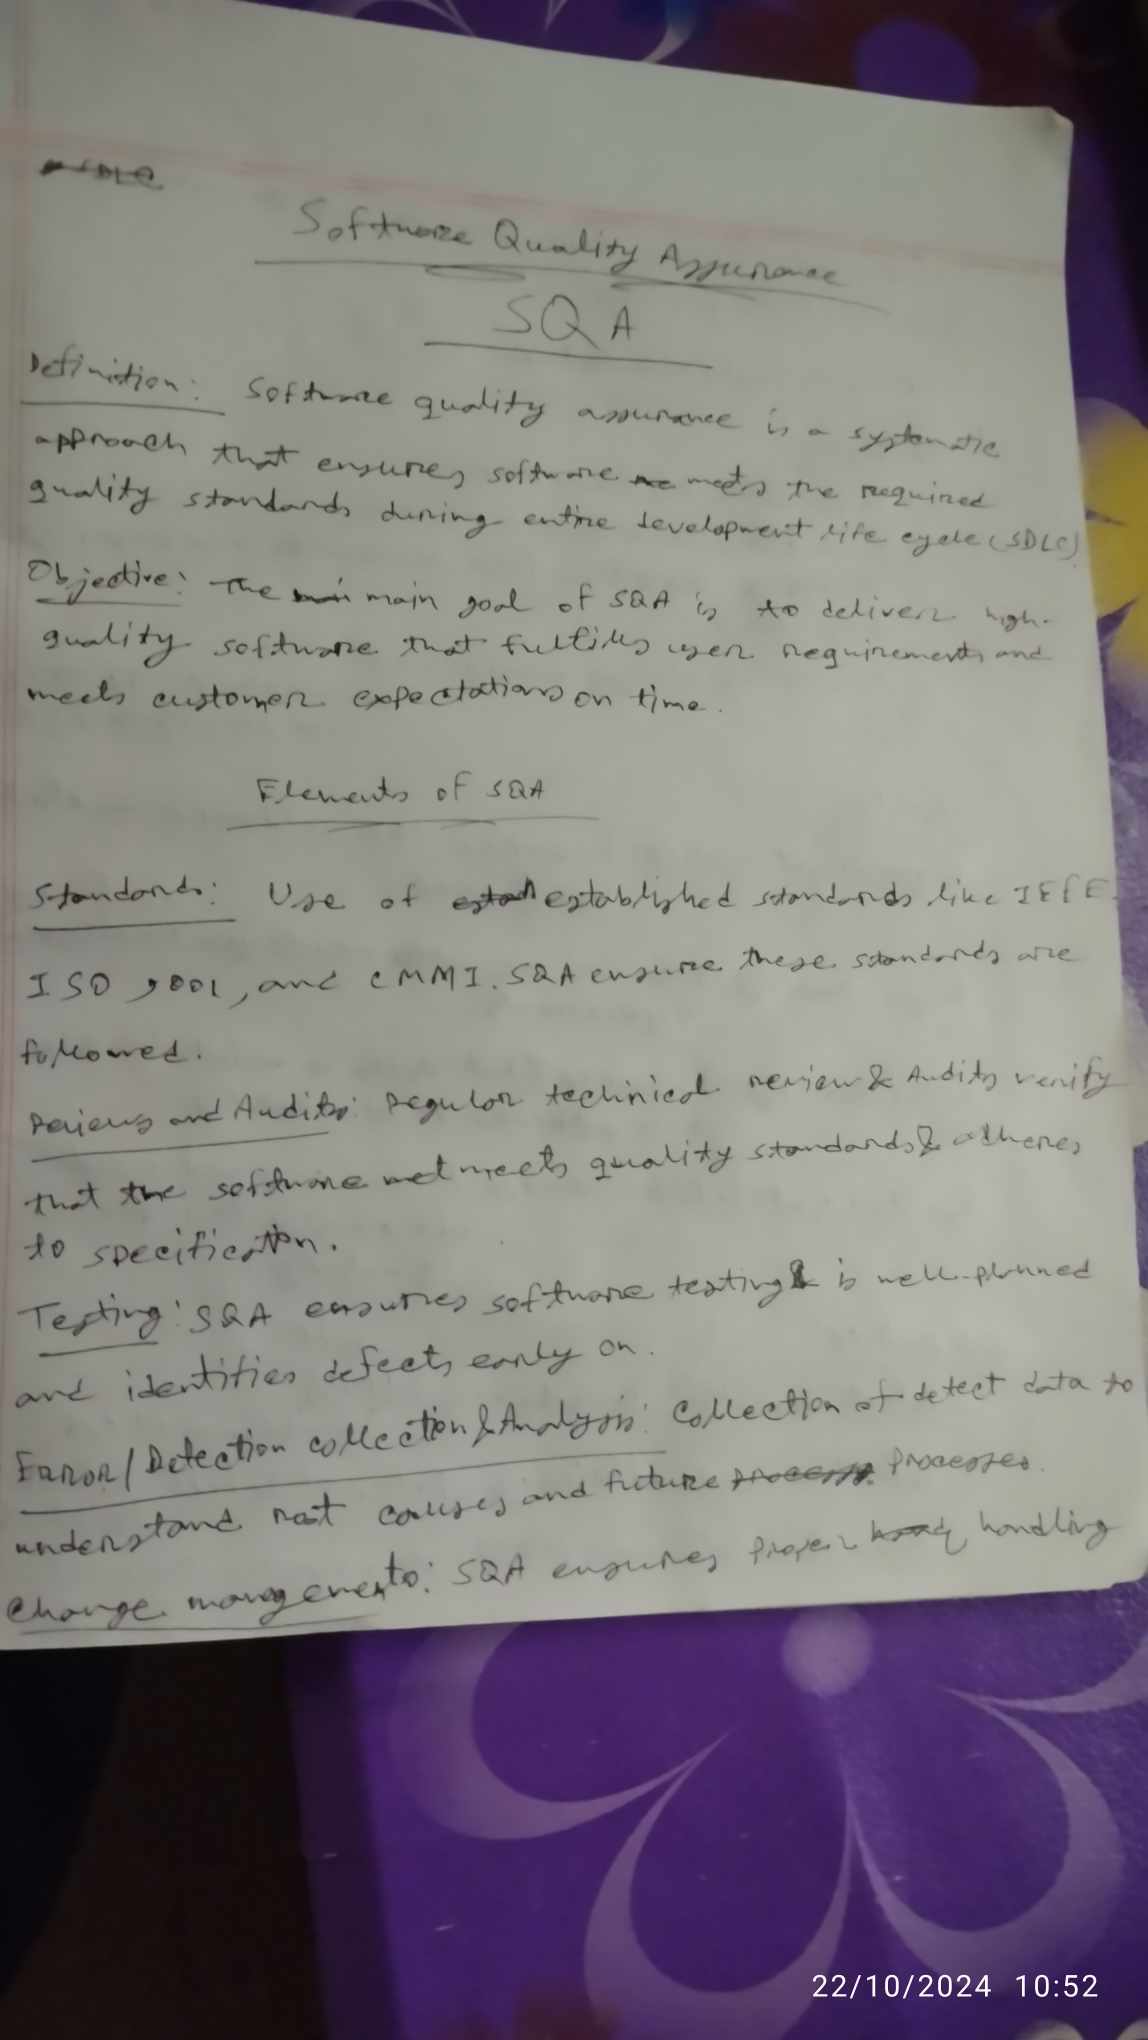 SDLC
Software Quality Assurance
SQA
Definition: Software quality assurance is a systematic
approach that ensures software meets the required
quality standards during entire development life cycle (SDLC)
Objective: The main goal of SQA is to deliver high-
quality software that fulfills user requirements and
meets customer expectations on time.
Elements of SQA
Standards: Use of established standards like IEEE
ISO 9001, and CMMI. SQA ensure these standards are
followed.
Reviews and Audits: Regular techinical review & Audits verify
that the software meets quality standards & adheres
to specification.
Testing: SQA ensures software testing is well-planned
and identifies defects early on.
Error/Detection collection & Analysis: Collection of detect data to
understand root causes and future processes.
Change managements: SQA ensures proper handling
22/10/2024 10:52